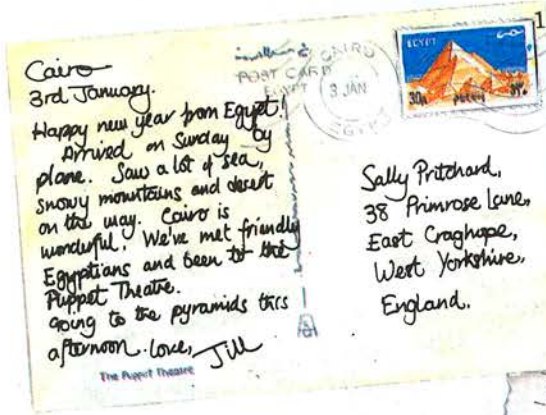 Cairo
3rd January.
Happy new year from Egypt!
Arrived on Sunday by
plane. Saw a lot of sea,
snowy mountains and desert
on the way. Cairo is
wonderful! We've met friendly
Egyptians and been to the
Puppet Theatre.
Going to the pyramids this
afternoon. Love, Jill
The Puppet Theatre
POST CARD
EGYPT
CAIRO
3 JAN
EGYPT
EGYPT
30
1
Sally Pritchard,
38 Primrose Lane,
East Craghope,
West Yorkshire,
England.